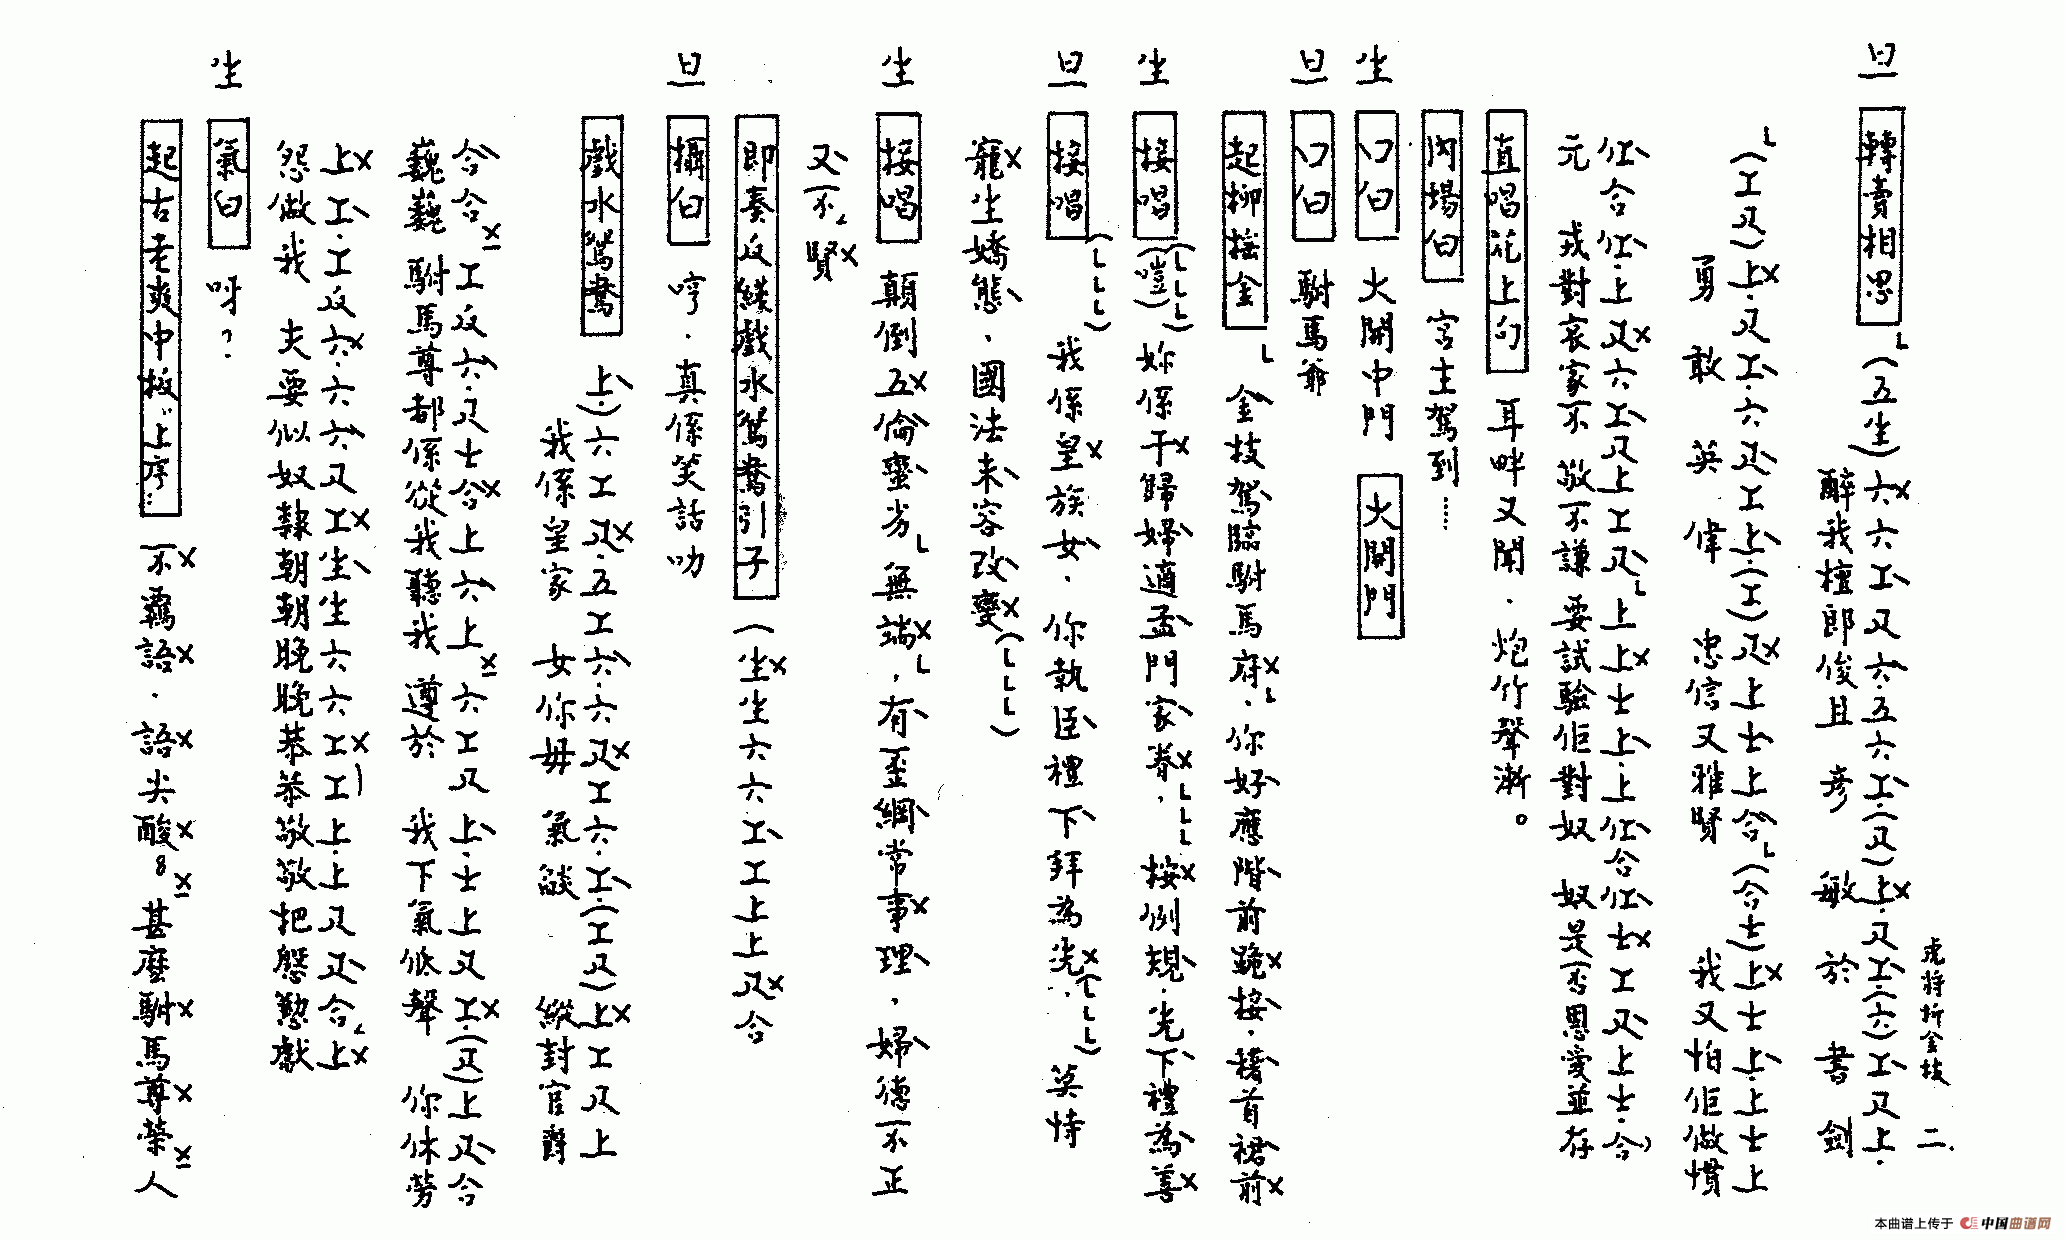 虎將折金枝 二
旦 轉賣相思 (五生)六六工尺六五六工(尺)上尺工(六)工尺上
醉我檀郎俊且彥敏於書劍
(工尺)上尺工六尺工上(工)尺上士上合(合士)上士上上士上
勇敢英偉忠信又雅賢 我又怕佢做慣
仜合仜上尺六工尺上工尺上上士上上仜合仜士工尺上士合
元戎對哀家不敬不謙要試驗佢對奴 奴是否恩愛並存
直唱花上句 耳畔又聞.炮竹聲漸。
內場白 宮主駕到……
生 口白 大開中門 大開門
旦 口白 駙馬爺
起柳搖金 金枝駕臨駙馬府.你好應階前跪接.藉首裙前
生 接唱 妳係于歸婦適孟門家眷,按例規.光下禮為善
旦 接唱 我係皇族女.你執臣禮下拜為先. 莫恃
寵生嬌態.國法未容改變
生 接唱 顛倒五倫蠻劣無端,有歪綱常事理,婦德不正
又不賢
即奏反綫戲水鴛鴦引子 (生生六六工工上上尺合
旦 攝白 哼.真係笑話叻
戲水鴛鴦 上)六工尺五工六六尺工六工(工尺)上工尺上
我係皇家 女你毋 氣燄 縱封官爵
合合工反六尺士合上六上六工尺上士上尺工(尺)上尺合
巍巍駙馬尊都係從我聽我遵於 我下氣低聲 你休勞
上工工反六六六尺工生生六六工工上上尺尺合上
怨做我 夫要似奴隸朝朝晚晚恭恭敬敬把慇懃獻
生 氣白 呀?
起古老爽中板"上序: 不羈語.語尖酸。甚麼駙馬尊榮人
本曲谱上传于 中国曲谱网